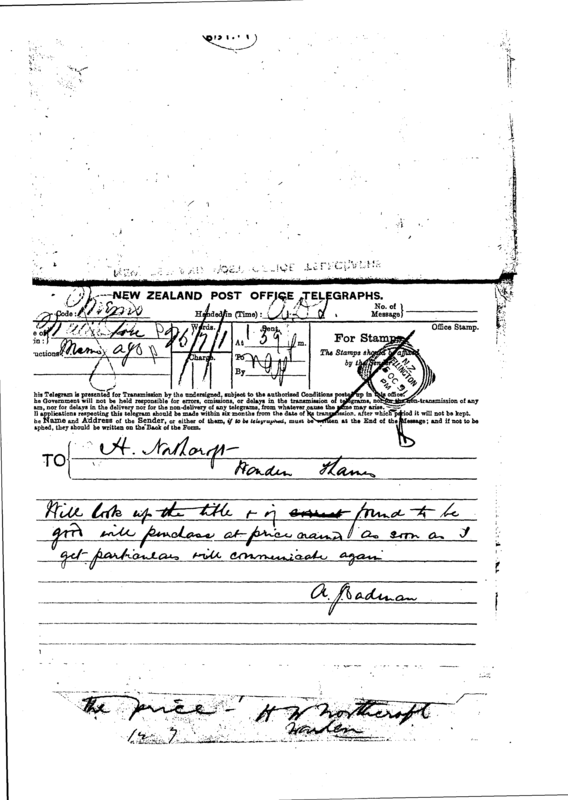 NEW ZEALAND POST OFFICE TELEGRAPHS.
Code: Handed in (Time): No. of Message}
Words. Sent. Office Stamp.
At 1 39 p m. For Stamps.
in: The Stamps should be affixed
uctions Charge. To by the
By
N.Z. WELLINGTON OC PM
his Telegram is presented for Transmission by the undersigned, subject to the authorised Conditions posted up in this office.
he Government will not be held responsible for errors, omissions, or delays in the transmission of telegrams, nor for the non-transmission of any
am, nor for delays in the delivery nor for the non-delivery of any telegrams, from whatever cause the same may arise.
ll applications respecting this telegram should be made within six months from the date of its transmission, after which period it will not be kept.
he Name and Address of the Sender, or either of them, if to be telegraphed, must be written at the End of the Message; and if not to be
aphed, they should be written on the Back of the Form.
TO H. Northcroft
Warden Thames
Will look up the title & if found to be
good will purchase at price named as soon as I
get particulars will communicate again
A. J. Cadman
the price - H W Northcroft
Warden